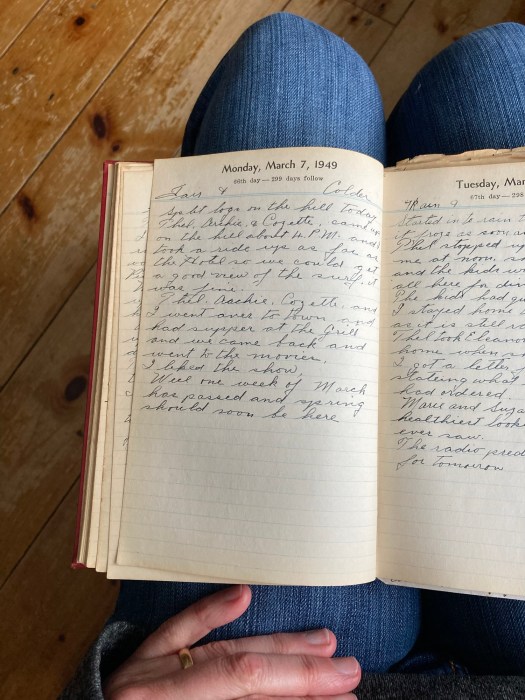 Monday, March 7, 1949
66th day — 299 days follow
Fair & Colder
Split logs on the hill today
Thel, Archie, & Cozette, came up
on the hill about 4 P.M. and I
took a ride up as far as
the Hotel so we could get
a good view of the surf, it
was fine.
Thel, Archie, Cozette, and
I went over to town and
had supper at the Grill
and we came back and
went to the movies.
I liked the show.
Well one week of March
has passed and spring
should soon be here
Tuesday, Mar
67th day — 298
Rain &
Started in to rain
it froze as soon a
Thel stopped u
me at noon, so
and the kids w
all here for din
The kids had g
I stayed home
as it is still r
Thel took Eleano
home when s
I got a letter f
stateing what
had ordered.
Marie and Suza
healthiest look
ever saw.
The radio pred
for tomorrow